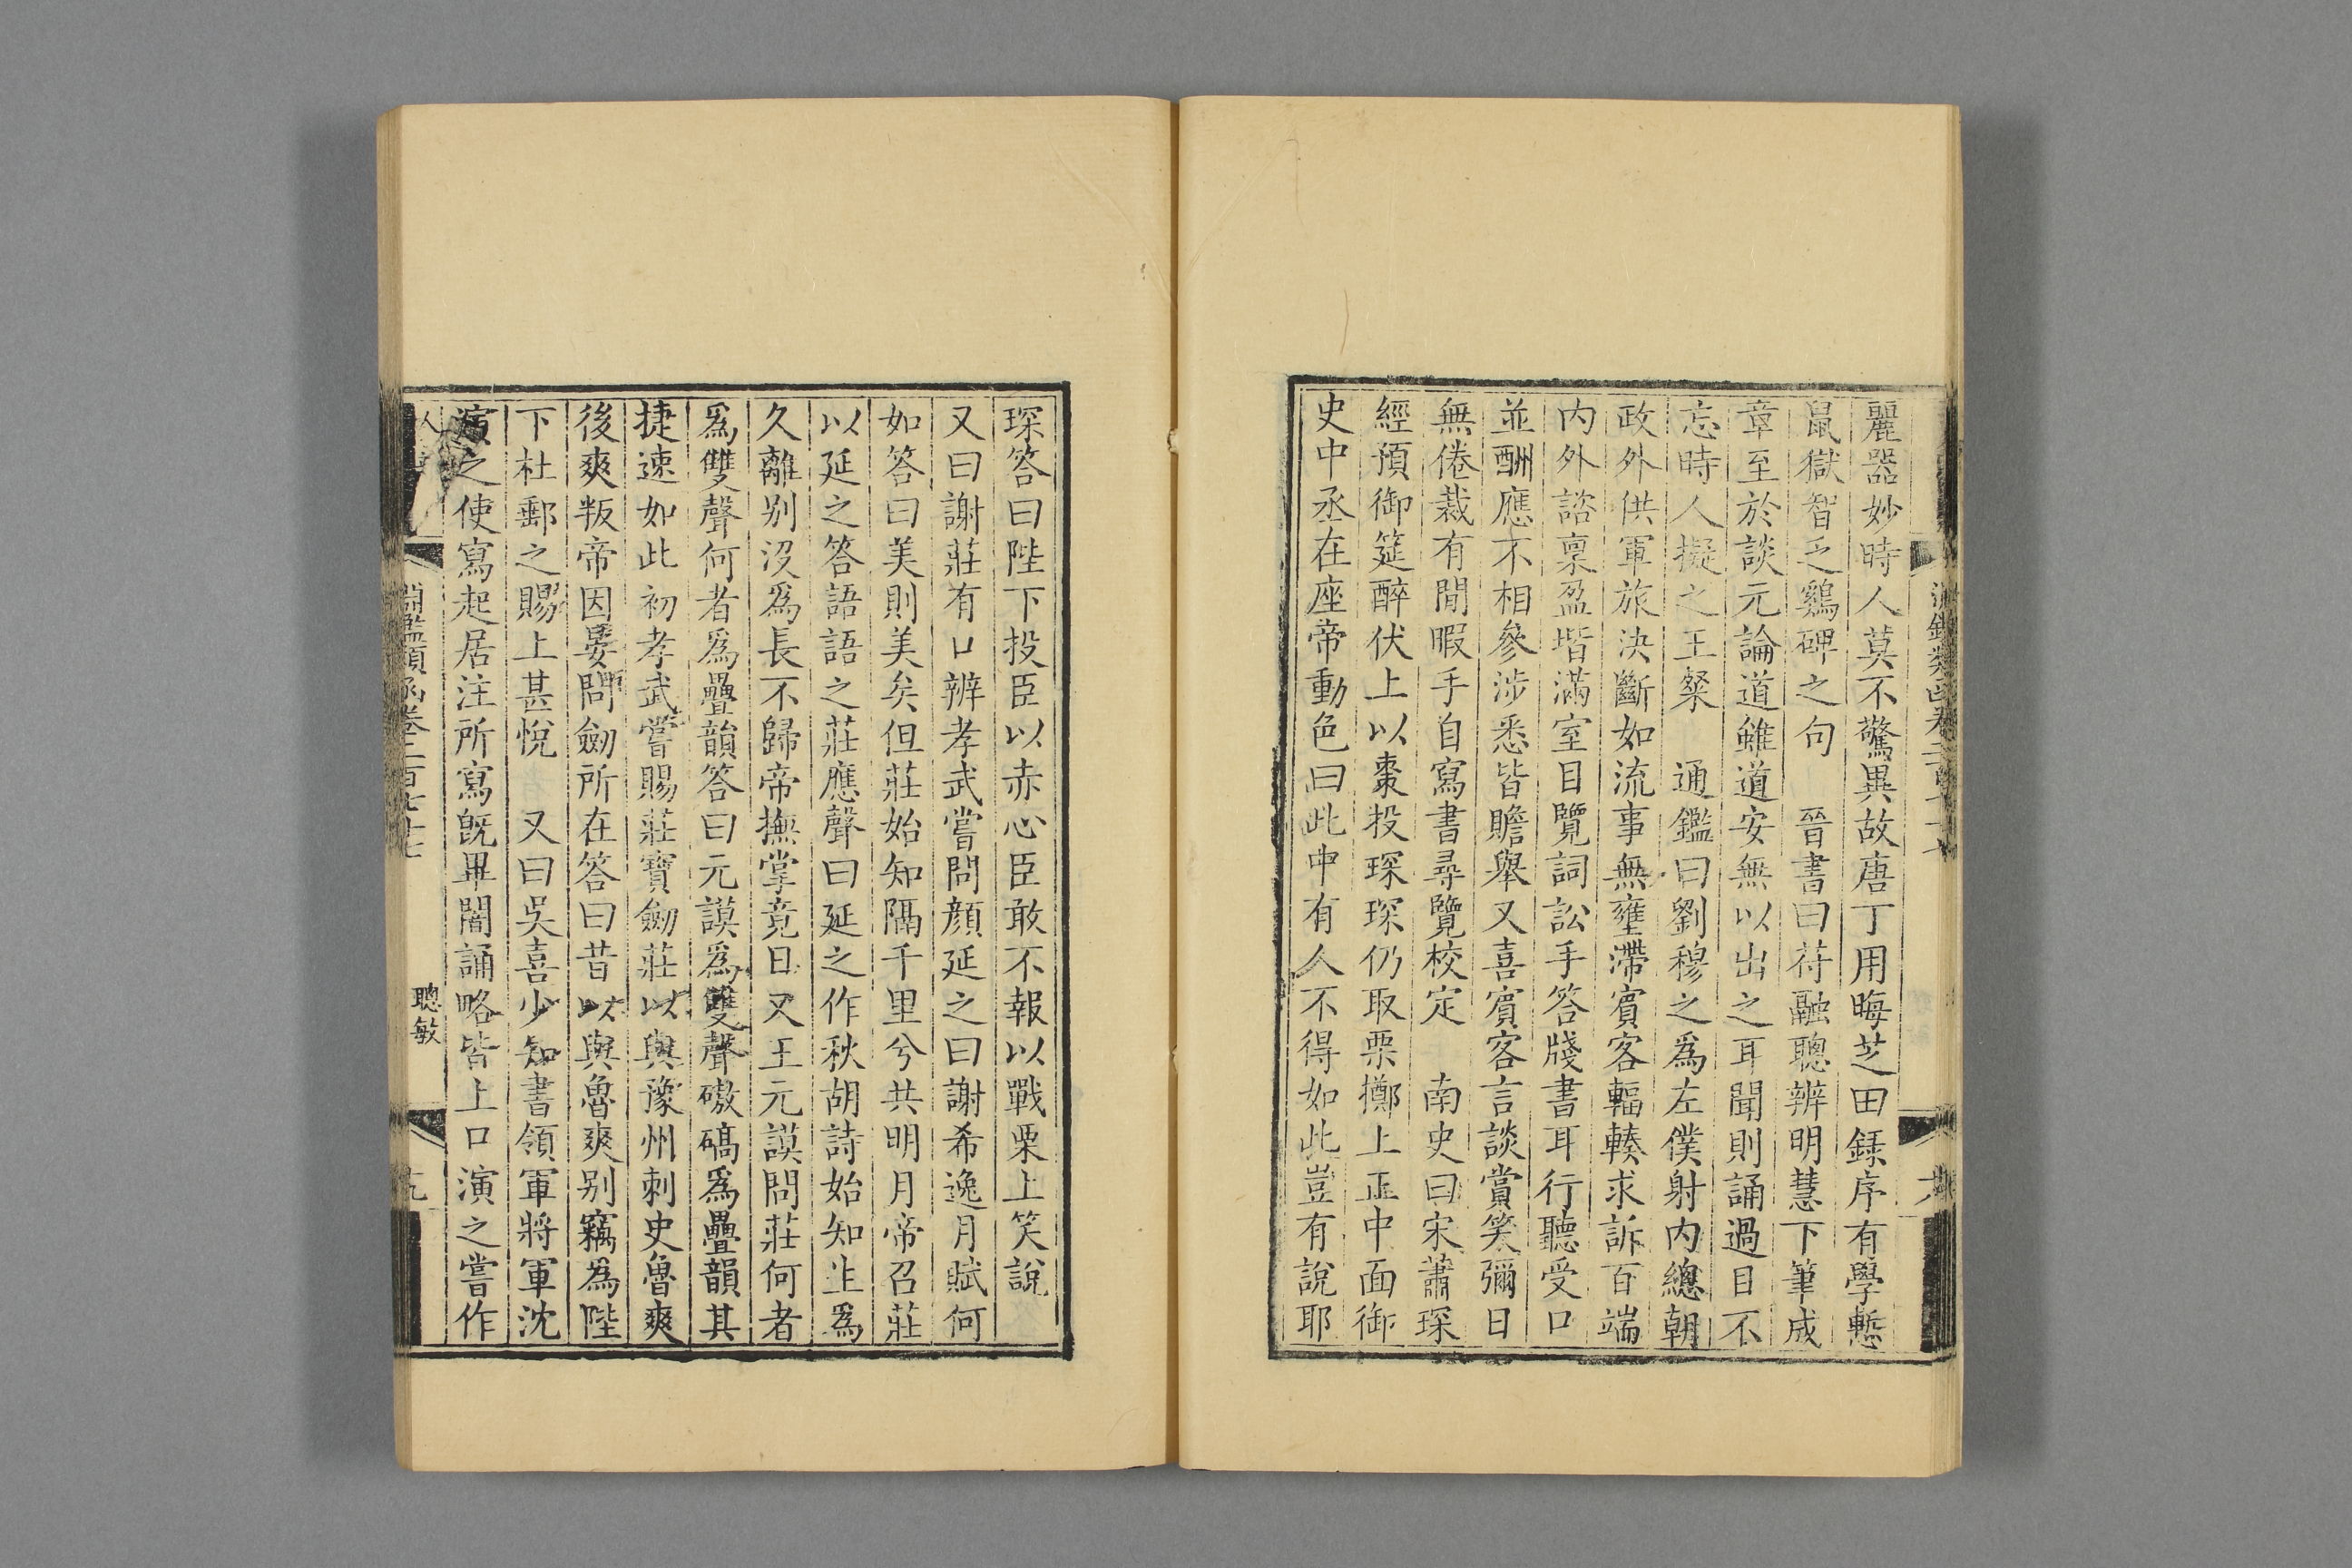 麗器妙時人莫不驚異故唐丁用晦芝田錄序有學慙
鼠獄智乏鷄碑之句　晉書曰苻融聰辨明慧下筆成
章至於談元論道雖道安無以出之耳聞則誦過目不
忘時人擬之王粲　通鑑曰劉穆之爲左僕射内總朝
政外供軍旅決斷如流事無壅滯賓客輻輳求訴百端
内外諮禀盈堦滿室目覽詞訟手答牋書耳行聽受口
並酬應不相參涉悉皆贍舉又喜賓客言談賞笑彌日
無倦裁有閒暇手自寫書尋覽校定　南史曰宋蕭琛
經預御筵醉伏上以棗投琛琛仍取栗擲上正中面御
史中丞在座帝動色曰此中有人不得如此豈有說耶
琛答曰陛下投臣以赤心臣敢不報以戰栗上笑說
又曰謝莊有口辨孝武嘗問顔延之曰謝希逸月賦何
如答曰美則美矣但莊始知隔千里兮共明月帝召莊
以延之答語語之莊應聲曰延之作秋胡詩始知生爲
久離别没爲長不歸帝撫掌竟日又王元謨問莊何者
爲雙聲何者爲疊韻答曰元謨爲雙聲磝碻爲疊韻其
捷速如此初孝武嘗賜莊寶劒莊以與豫州刺史魯爽
後爽叛帝因宴問劒所在答曰昔以與魯爽别竊爲陛
下杜郵之賜上甚悅　又曰吳喜少知書領軍將軍沈
演之使寫起居注所寫旣畢闇誦略皆上口演之嘗作
淵鑑類函卷二百七十七
聰敏